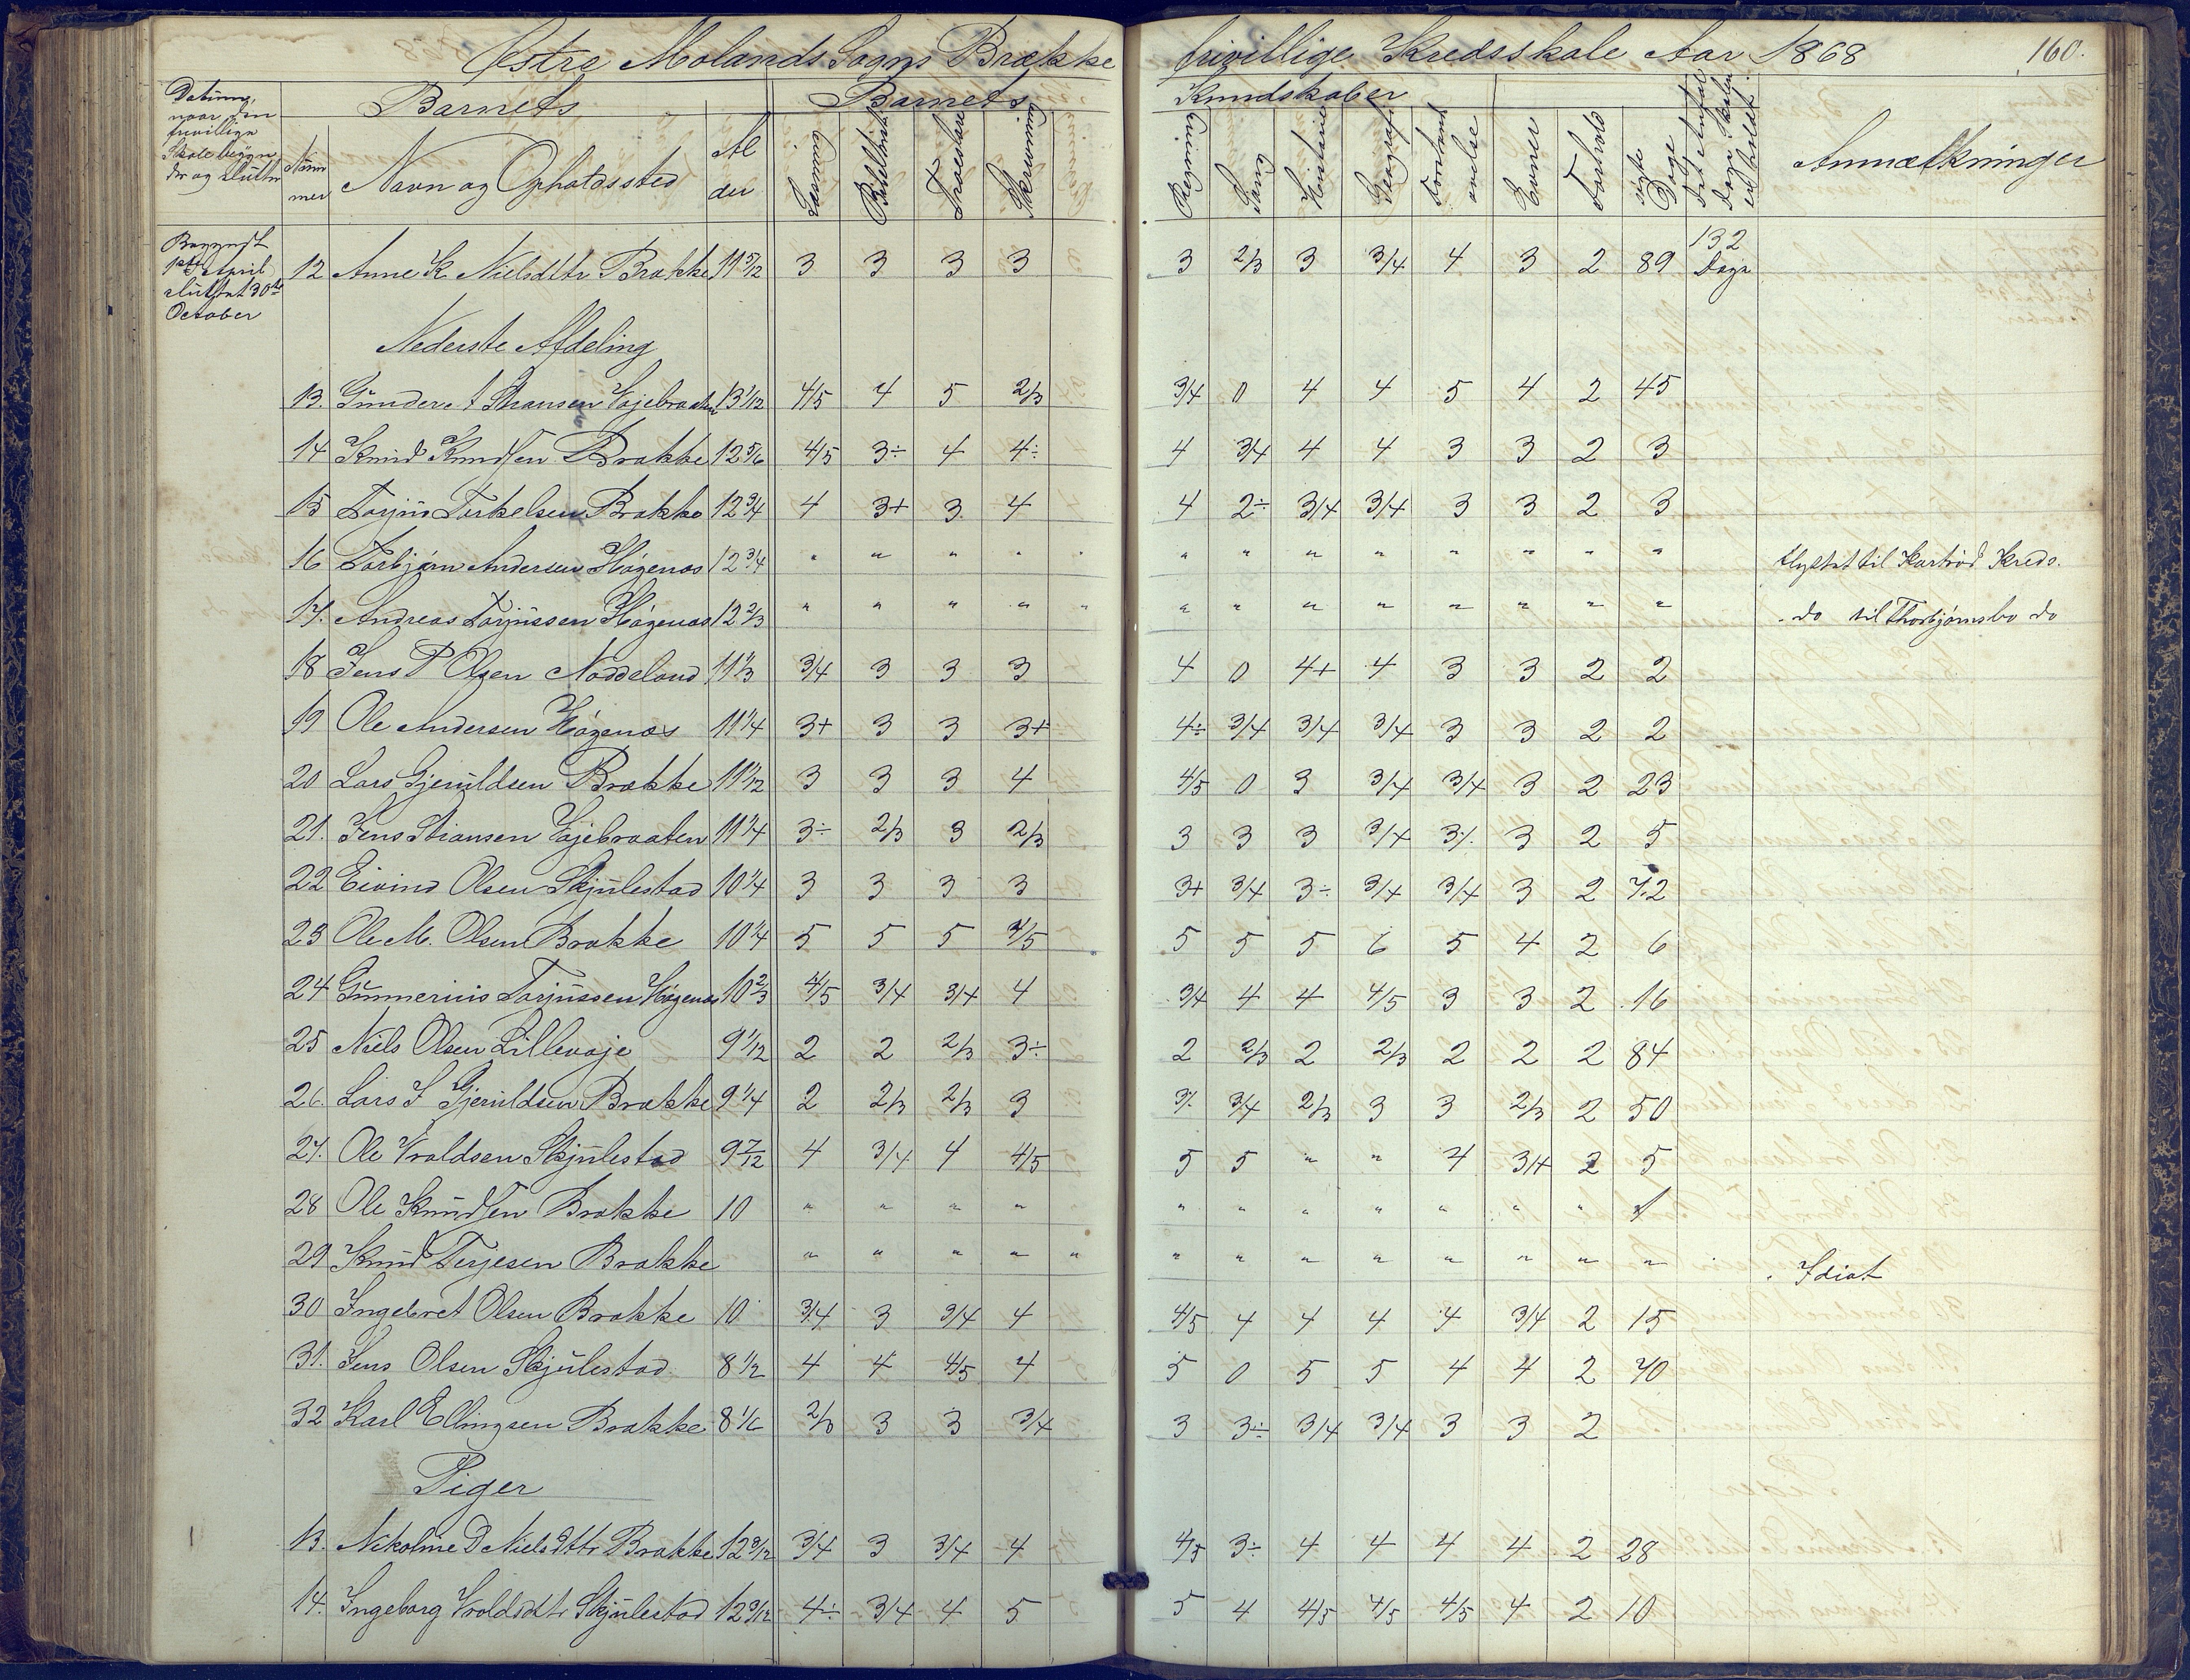 Østre Molands Sogns Brække frivillige Kredsskole Aar 1868 160.
Datum, naar den frivillige Skole begynder og slutter
Nummer
Barnets
Navn og Opholdssted
Alder
Barnets Kundskaber
Læsning
Bibelhist.
Troeslære
Skrivning
Regning
Sang
Historie
Geografi
Forstandsøvelse
Evner
Forhold
søgte Dage
Det Antal Dage Skolen er holdt
Anmærkninger
Begyndt 1ste April sluttet 30te October
12 Anne K Nielsdttr Brække 11 5/12 3 3 3 3 3 2/3 3 3/4 4 3 2 89 132 Dage
Nederste Afdeling
13. Gunder Stiansen Vajebraaten 13 1/12 4/5 4 5 2/3 3/4 0 4 4 5 4 2 45
14 Knud Knudsen Brække 12 5/6 4/5 3÷ 4 4÷ 4 3/4 4 4 3 3 2 3
15 Torjus Torkelsen Brække 12 3/4 4 3+ 3 4 4 2÷ 3/4 3/4 3 3 2 3
16 Torbjørn Andersen Høgenæs 12 3/4 " " " " " " " " " " " " flyttet til Kartrød Kreds.
17. Andreas Torjussen Høgenæs 12 2/3 " " " " " " " " " " " " " do til Thorbjørnsbo do
18 Jens P Olsen Næddeland 11 1/3 3/4 3 3 3 4 0 4+ 4 3 3 2 2
19 Ole Andersen Høgenæs 11 1/4 3+ 3 3 3+ 4÷ 3/4 3/4 3/4 3 3 2 2
20 Lars Gjeruldsen Brække 11 1/12 3 3 3 4 4/5 0 3 3/4 3/4 3 2 23
21. Jens Stiansen Vajebraaten 11 1/4 3÷ 2/3 3 2/3 3 3 3 3/4 3÷ 3 2 5
22 Eivind Olsen Skjulestad 10 1/4 3 3 3 3 3+ 3/4 3÷ 3/4 3/4 3 2 72
23 Ole M. Olsen Brække 10 1/4 5 5 5 4/5 5 5 5 6 5 4 2 6
24 Gunnerius Torjussen Høgenæs 10 2/3 4/5 3/4 3/4 4 3/4 4 4 4/5 3 3 2 16
25 Niels Olsen Lillevaje 9 1/12 2 2 2/3 3÷ 2 2/3 2 2/3 2 2 2 84
26. Lars J Gjeruldsen Brække 9 1/4 2 2/3 2/3 3 3÷ 3/4 2/3 3 3 2/3 2 50
27. Ole Vroldsen Skjulestad 9 7/12 4 3/4 4 4/5 5 5 " " 4 3/4 2 5
28 Ole Knudsen Brække 10 " " " " " " " " " " "
29 Knud Terjesen Brække " " " " " " " " " " " " " Idiot
30 Ingebret Olsen Brække 10 3/4 3 3/4 4 4/5 4 4 4 4 3/4 2 15
31. Jens Olsen Skjulestad 8 1/2 4 4 4/5 4 5 0 5 5 4 4 2 40
32 Karl Ellingsen Brække 8 1/6 2/3 3 3 3/4 3 3÷ 3/4 3/4 3 3 2
Piger
13. Nikoline D Nielsdttr Brække 12 9/12 3/4 3 3/4 4 4/5 3÷ 4 4 4 4 2 28
14. Ingeborg Vroldsdttr Skjulestad 12 9/12 4÷ 3/4 4 5 5 4 4/5 4/5 4/5 4 2 10